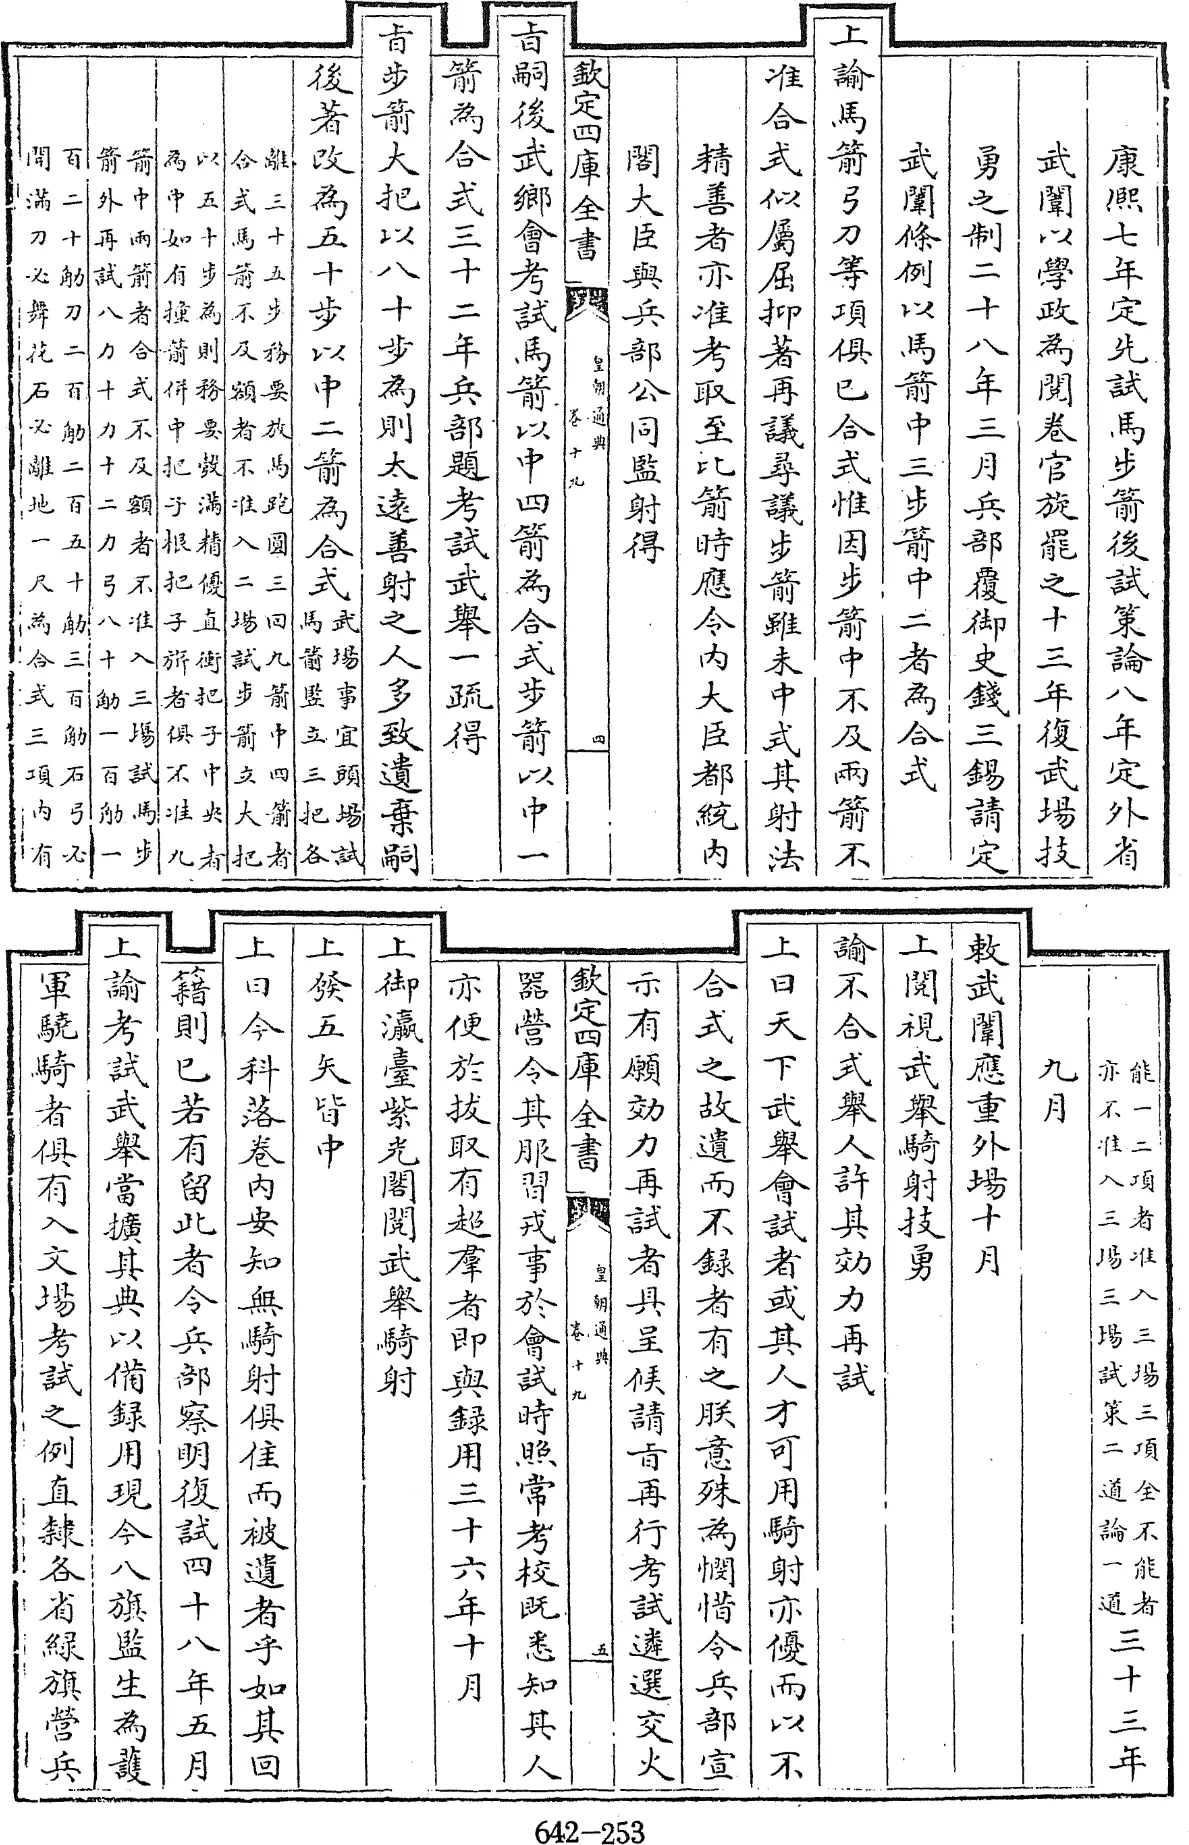 康熙七年定先試馬步箭後試策論八年定外省
武闈以學政為閱卷官旋罷之十三年復武場技
勇之制二十八年三月兵部覆御史錢三錫請定
武闈條例以馬箭中三步箭中二者為合式
上諭馬箭弓刀等項俱已合式惟因步箭中不及兩箭不
准合式似屬屈抑著再議尋議步箭雖未中式其射法
精善者亦准考取至比箭時應令内大臣都統内
閣大臣與兵部公同監射得
欽定四庫全書
皇朝通典
卷十九
四
㫖嗣後武鄉會考試馬箭以中四箭為合式步箭以中一
箭為合式三十二年兵部題考試武舉一疏得
㫖步箭大把以八十步為則太遠善射之人多致遺棄嗣
後著改為五十步以中二箭為合式
武場事宜頭場試
馬箭監立三把各
離三十五步務要放馬跑圓三回九箭中四箭者
合式馬箭不及額者不准入二場試步箭立大把
以五十步為則務要彀滿精優直衝把子中央者
為中如有撞箭併中把子根把子旂者俱不准九
箭中兩箭者合式不及額者不准入三場試馬步
箭外再試八力十力十二力弓八十觔一百觔一
百二十觔刀二百觔二百五十觔三百觔石弓必
開滿刀必舞花石必離地一尺為合式三項内有
能一二項者准入三場三項全不能者
亦不准入三場三場試策二道論一道
三十三年
九月
敕武闈應重外場十月
上閱視武舉騎射技勇
諭不合式舉人許其効力再試
上曰天下武舉會試者或其人才可用騎射亦優而以不
合式之故遺而不録者有之朕意殊為憫惜令兵部宣
示有願効力再試者具呈候請㫖再行考試遴選交火
欽定四庫全書
皇朝通典
卷十九
五
器營令其服習戎事於會試時照常考校既悉知其人
亦便於拔取有超羣者即與録用三十六年十月
上御瀛臺紫光閣閱武舉騎射
上發五矢皆中
上曰今科落卷内安知無騎射俱佳而被遺者乎如其回
籍則已若有留此者令兵部察明復試四十八年五月
上諭考試武舉當擴其典以備録用現今八旗監生為護
軍驍騎者俱有入文場考試之例直隸各省緑旗營兵
642-253